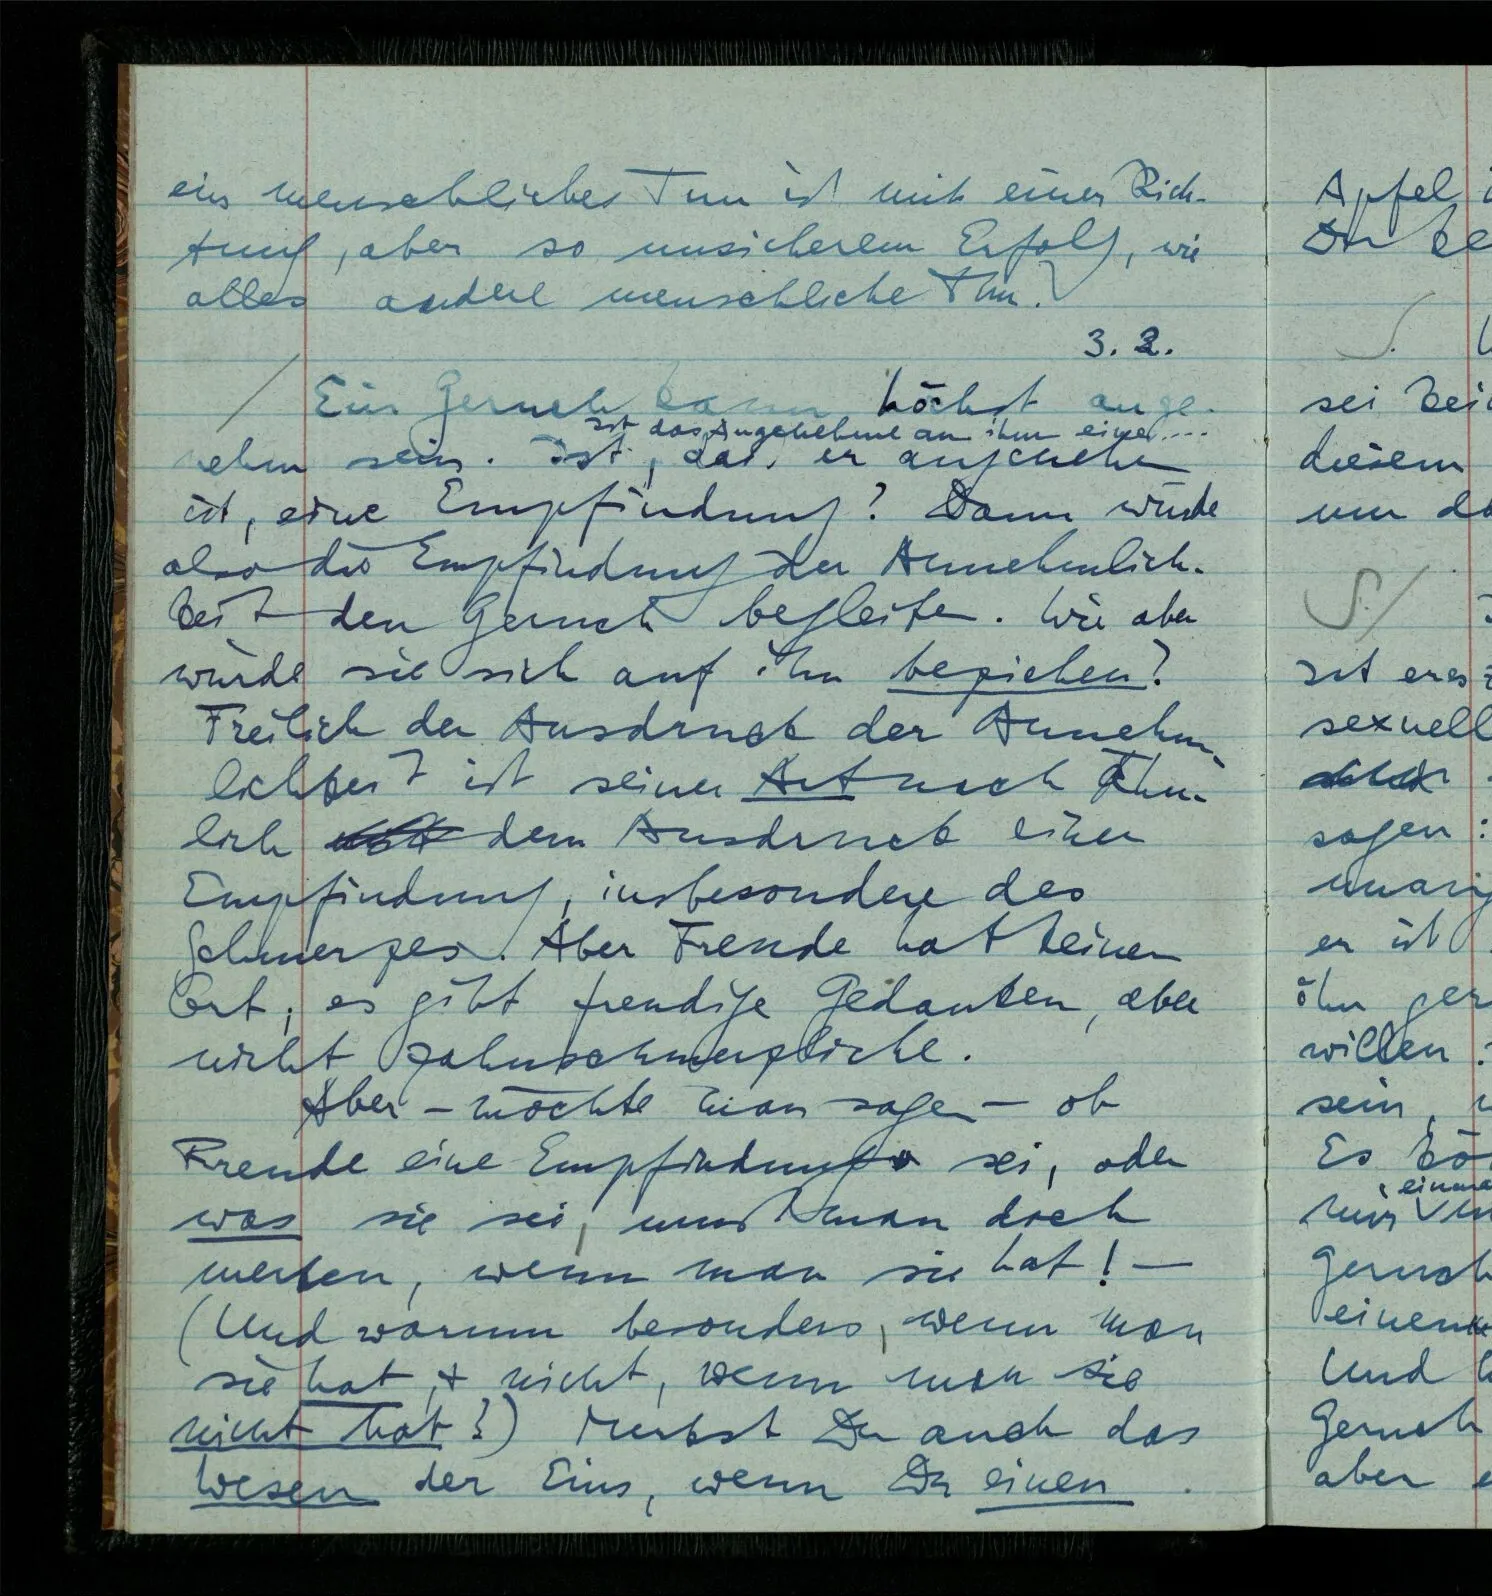 ein menschliches Tun ist mit einer Rich-
tung, aber so unsicherem Erfolg, wie
alles andere menschliche Thun.
3. 2.
/ Ein Geruch kann höchst ange-
Ist das Angenehme an ihm eine ....
nehm sein. Ist, daß er angenehm
ist, eine Empfindung? Dann würde
also die Empfindung der Annehmlich-
keit den Geruch begleiten. Wie aber
würde sie sich auf ihn beziehen?
Freilich der Ausdruck der Annehm-
lichkeit ist seiner Art nach ähn-
lich dem Ausdruck einer
Empfindung, insbesondere des
Schmerzes. Aber Freude hat keinen
Ort; es gibt freudige Gedanken, aber
nicht zahnschmerzliche.
Aber – möchte man sagen – ob
Freude eine Empfindung sei, oder
was sie sei, muß man doch
merken, wenn man sie hat! —
(Und warum besonders, wenn man
sie hat, + nicht, wenn man sie
nicht hat?) Merkst Du auch das
Wesen der Eins, wenn Du einen
Apfel
Du
S.
sei
diesem
um
S /
ist er es
sexuell
sagen:
unari
er ist
ihn
willen
sein,
Es
einma
nur
Geruch
einen
Und
Geruch
aber